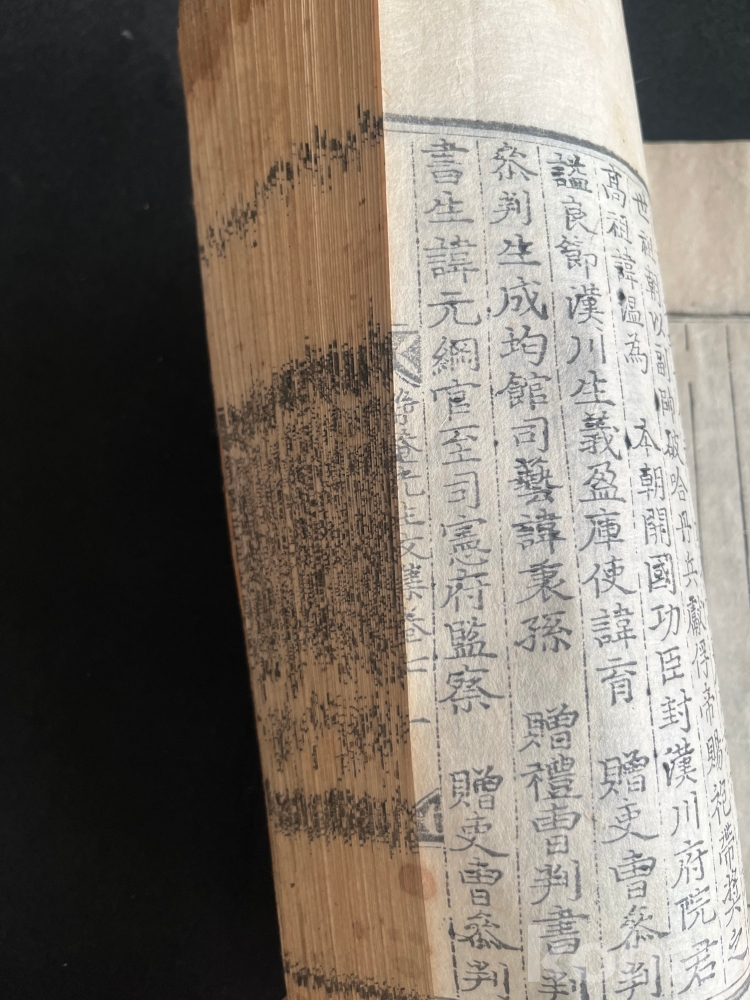 世祖朝以副破哈丹兵獻俘帝賜袍帶獎之
高祖諱温為 本朝開國功臣封漢川府院君
謚良節漢川生義盈庫使諱育 贈吏曹叅判
叅判生成均館司藝諱衷孫 贈禮曹判書判
書生諱元綱官至司憲府監察 贈吏曹叅判
菴先生文集卷七 一